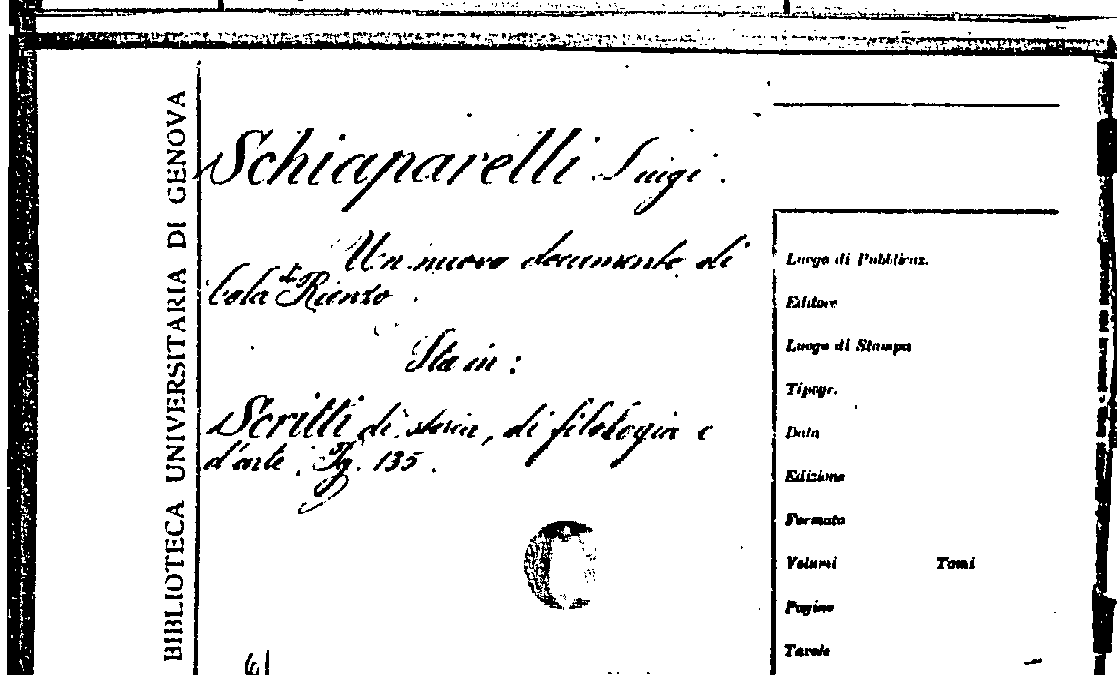 BIBLIOTECA UNIVERSITARIA DI GENOVA
Schiaparelli Luigi.
Un nuovo documento di
Cola di Rienzo.
Sta in:
Scritti di storia, di filologia e
d'arte. Pg. 135.
Luogo di Pubblicaz.
Editore
Luogo di Stampa
Tipogr.
Data
Edizione
Formato
Volumi Tomi
Pagine
Tavole